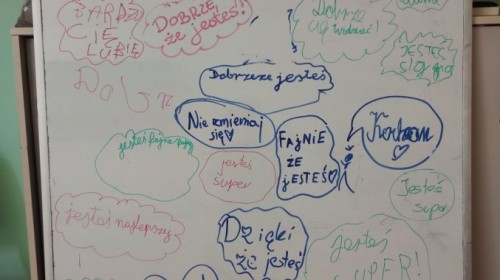 BARDZO
CIĘ
LUBIĘ
DOBRZE
że jesteś!
Dobrze
cię widzieć!
JESTEŚ
Dobrzeże jesteś
Nie zmieniaj
się♡
FAJNIE
ŻE
jESTEŚ♡
Kocham
♡
jesteś
super
Jesteś
super
jesteś najlepszy
Dzięki
że jesteś
jesteś
SUPER!